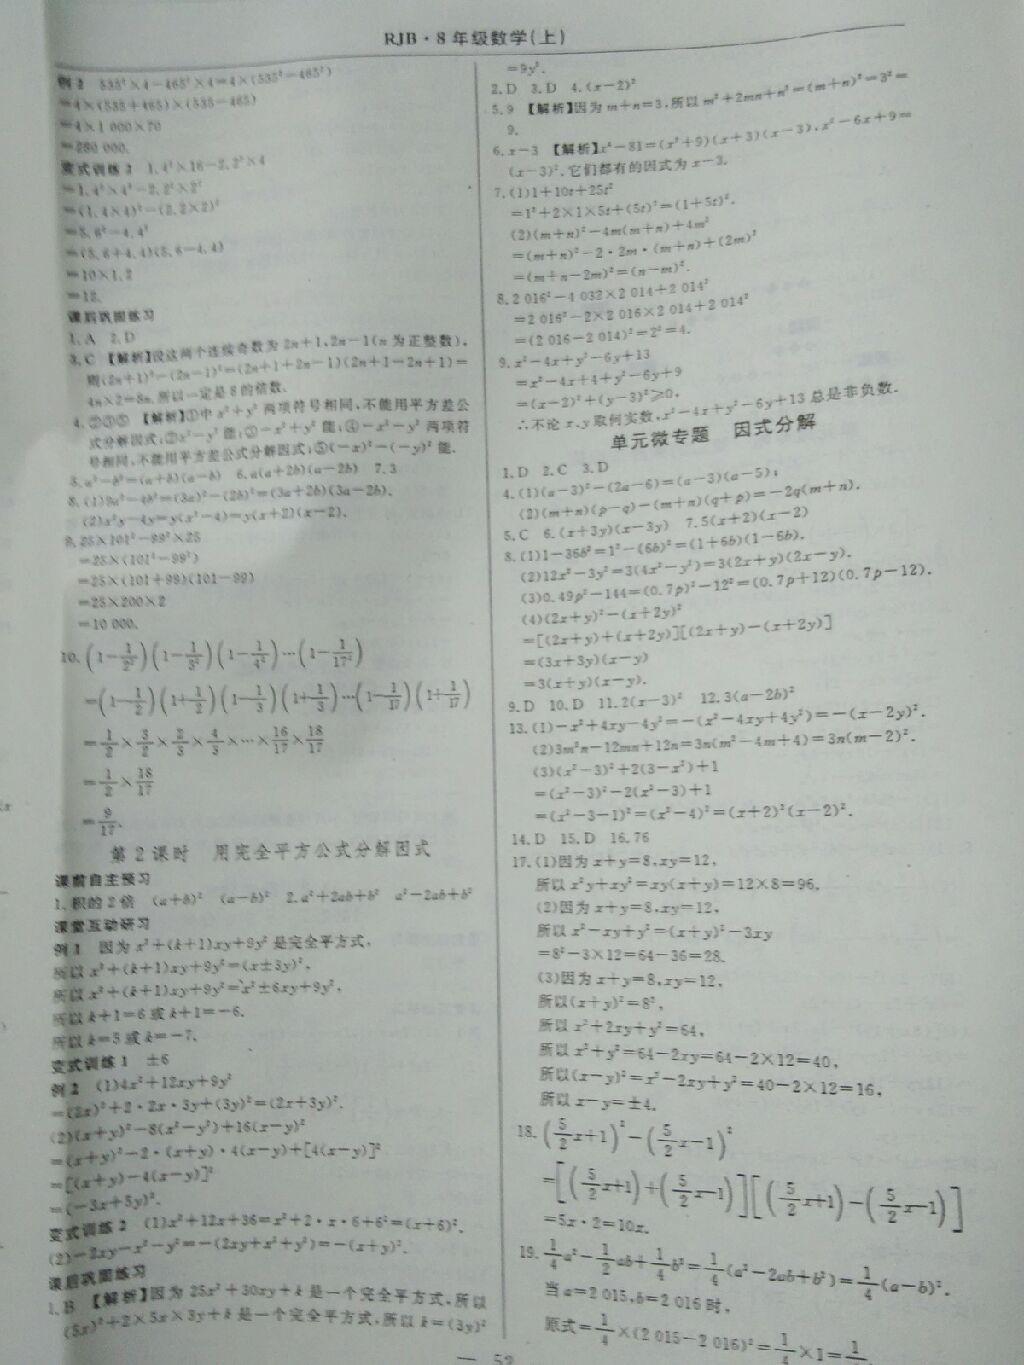 RJB·8年级数学(上)
例2 535²×4-465²×4=4×(535²-465²)
=4×(535+465)×(535-465)
=4×1 000×70
=280 000.
变式训练2 1.4²×16-2.2²×4
=1.4²×4²-2.2²×2²
=(1.4×4)²-(2.2×2)²
=5.6²-4.4²
=(5.6+4.4)(5.6-4.4)
=10×1.2
=12.
课后巩固练习
1.A 2.D
3.C 【解析】设这两个连续奇数为2n+1,2n-1(n为正整数),
则(2n+1)²-(2n-1)²=(2n+1+2n-1)(2n+1-2n+1)=
4n×2=8n.所以一定是8的倍数.
4.②③⑤ 【解析】①中x²+y²两项符号相同,不能用平方差公
式分解因式;②x²-y²能;③-x²+y²能;④-x²-y²两项符
号相同,不能用平方差公式分解因式;⑤(-x)²-(-y)²能.
5.a²-b²=(a+b)(a-b) 6.a(a+2b)(a-2b) 7.3
8.(1)9a²-4b²=(3a)²-(2b)²=(3a+2b)(3a-2b).
(2)x²y-4y=y(x²-4)=y(x+2)(x-2).
9.25×101²-99²×25
=25×(101²-99²)
=25×(101+99)(101-99)
=25×200×2
=10 000.
10.(1-1/2²)(1-1/3²)(1-1/4²)…(1-1/17²)
=(1-1/2)(1+1/2)(1-1/3)(1+1/3)…(1-1/17)(1+1/17)
=1/2×3/2×2/3×4/3×…×16/17×18/17
=1/2×18/17
=9/17.
第2课时 用完全平方公式分解因式
课前自主预习
1.积的2倍 (a+b)² (a-b)² 2.a²+2ab+b² a²-2ab+b²
课堂互动研习
例1 因为x²+(k+1)xy+9y²是完全平方式,
所以x²+(k+1)xy+9y²=(x±3y)²,
所以x²+(k+1)xy+9y²=x²±6xy+9y²,
所以k+1=6或k+1=-6.
所以k=5或k=-7.
变式训练1 ±6
例2 (1)4x²+12xy+9y²
=(2x)²+2·2x·3y+(3y)²=(2x+3y)².
(2)(x+y)²-8(x²-y²)+16(x-y)²
=(x+y)²-2·(x+y)·4(x-y)+[4(x-y)]²
=[(x+y)-4(x-y)]²
=(-3x+5y)².
变式训练2 (1)x²+12x+36=x²+2·x·6+6²=(x+6)².
(2)-2xy-x²-y²=-(2xy+x²+y²)=-(x+y)².
课后巩固练习
1.B 【解析】因为25x²+30xy+k是一个完全平方式,所以
(5x)²+2×5x×3y+k是一个完全平方式,所以k=(3y)²
=9y².
2.D 3.D 4.(x-2)²
5.9 【解析】因为m+n=3,所以m²+2mn+n²=(m+n)²=3²=
9.
6.x-3 【解析】x⁴-81=(x²+9)(x+3)(x-3),x²-6x+9=
(x-3)²,它们都有的因式为x-3.
7.(1)1+10t+25t²
=1²+2×1×5t+(5t)²=(1+5t)².
(2)(m+n)²-4m(m+n)+4m²
=(m+n)²-2·2m·(m+n)+(2m)²
=(m+n-2m)²=(n-m)².
8.2 016²-4 032×2 014+2 014²
=2 016²-2×2 016×2 014+2 014²
=(2 016-2 014)²=2²=4.
9.x²-4x+y²-6y+13
=x²-4x+4+y²-6y+9
=(x-2)²+(y-3)²≥0,
∴不论x、y取何实数,x²-4x+y²-6y+13总是非负数.
单元微专题 因式分解
1.D 2.C 3.D
4.(1)(a-3)²-(2a-6)=(a-3)(a-5);
(2)(m+n)(p-q)-(m+n)(q+p)=-2q(m+n).
5.C 6.(x+3y)(x-3y) 7.5(x+2)(x-2)
8.(1)1-36b²=1²-(6b)²=(1+6b)(1-6b).
(2)12x²-3y²=3(4x²-y²)=3(2x+y)(2x-y).
(3)0.49p²-144=(0.7p)²-12²=(0.7p+12)(0.7p-12).
(4)(2x+y)²-(x+2y)²
=[(2x+y)+(x+2y)][(2x+y)-(x+2y)]
=(3x+3y)(x-y)
=3(x+y)(x-y).
9.D 10.D 11.2(x-3)² 12.3(a-2b)²
13.(1)-x²+4xy-4y²=-(x²-4xy+4y²)=-(x-2y)².
(2)3m²n-12mn+12n=3n(m²-4m+4)=3n(m-2)².
(3)(x²-3)²+2(3-x²)+1
=(x²-3)²-2(x²-3)+1
=(x²-3-1)²=(x²-4)²=(x+2)²(x-2)².
14.D 15.D 16.76
17.(1)因为x+y=8,xy=12,
所以x²y+xy²=xy(x+y)=12×8=96,
(2)因为x+y=8,xy=12,
所以x²-xy+y²=(x+y)²-3xy
=8²-3×12=64-36=28.
(3)因为x+y=8,xy=12,
所以(x+y)²=8²,
所以x²+2xy+y²=64,
所以x²+y²=64-2xy=64-2×12=40,
所以(x-y)²=x²-2xy+y²=40-2×12=16,
所以x-y=±4.
18.(5/2x+1)²-(5/2x-1)²
=[(5/2x+1)+(5/2x-1)][(5/2x+1)-(5/2x-1)]
=5x·2=10x.
19.1/4a²-1/2ab+1/4b²=1/4(a²-2ab+b²)=1/4(a-b)².
当a=2 015,b=2 016时,
原式=1/4×(2 015-2 016)²=1/4×1=1/4
— 52